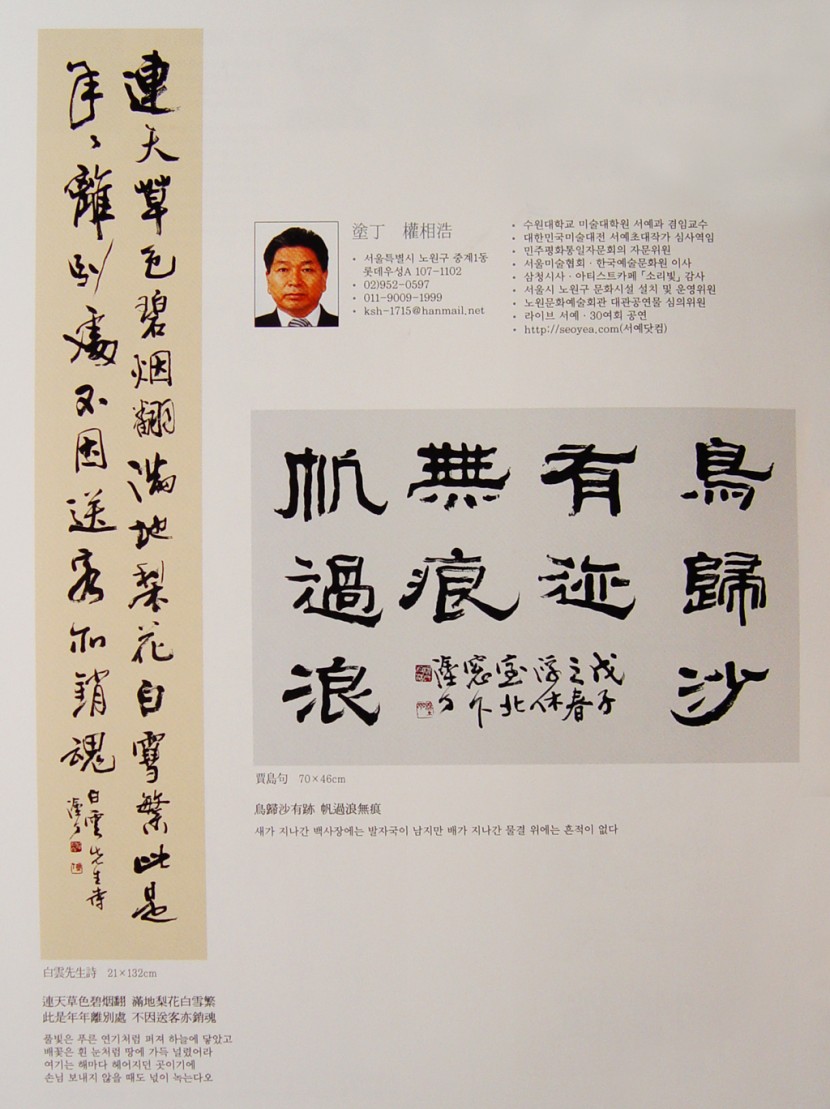 連天草色碧烟翻滿地梨花白雪繁此是
年々離別處不因送客亦銷魂
白雲先生詩
塗丁
塗丁 權相浩
• 서울특별시 노원구 중계1동
롯데우성A 107-1102
• 02)952-0597
• 011-9009-1999
• ksh-1715@hanmail.net
• 수원대학교 미술대학원 서예과 겸임교수
• 대한민국미술대전 서예초대작가 심사역임
• 민주평화통일자문회의 자문위원
• 서울미술협회·한국예술문화원 이사
• 삼청시사·아티스트카페「소리빛」감사
• 서울시 노원구 문화시설 설치 및 운영위원
• 노원문화예술회관 대관공연물 심의위원
• 라이브 서예·30여회 공연
• http://seoyea.com(서예닷컴)
鳥歸沙
有迹
無痕
帆過浪
戊子
之春
浮休
室北
窓下
塗丁
賈島句 70×46cm
鳥歸沙有跡 帆過浪無痕
새가 지나간 백사장에는 발자국이 남지만 배가 지나간 물결 위에는 흔적이 없다
白雲先生詩 21×132cm
連天草色碧烟翻 滿地梨花白雪繁
此是年年離別處 不因送客亦銷魂
풀빛은 푸른 연기처럼 퍼져 하늘에 닿았고
배꽃은 흰 눈처럼 땅에 가득 널렸어라
여기는 해마다 헤어지던 곳이기에
손님 보내지 않을 때도 넋이 녹는다오